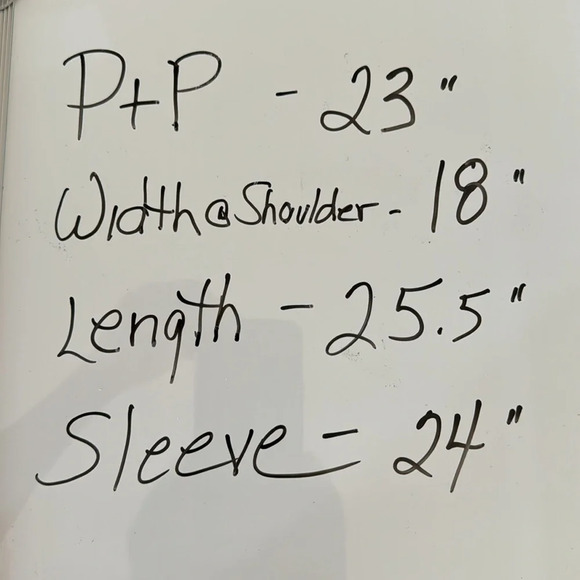 P+P - 23"
Width@Shoulder - 18"
Length - 25.5"
Sleeve - 24"